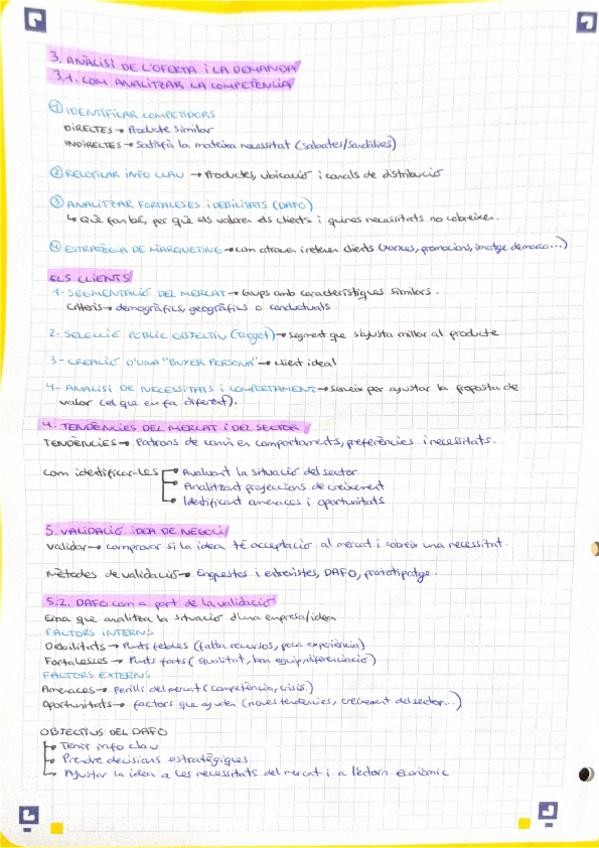 3. ANÀLISI DE L'OFERTA i LA DEMANDA
3.1. COM ANALITZAR LA COMPETÈNCIA
① IDENTIFICAR COMPETIDORS
DIRECTES → Producte similar
INDIRECTES → Satisfà la mateixa necessitat (sabates/sandàlies)
② RECOPILAR INFO CLAU → Productes, ubicació i canals de distribució
③ ANALITZAR FORTALESES i DEBILITATS (DAFO)
↳ Què fan bé, per què els valoren els clients i quines necessitats no cobreixen.
④ ESTRATÈGIA DE MÀRQUETING → com atrauen i retenen clients (xarxes, promocions, imatge de marca...)
ELS CLIENTS
1- SEGMENTACIÓ DEL MERCAT → Grups amb característiques similars.
Criteris → demogràfics, geogràfics o conductuals
2- SELECCIÓ PÚBLIC OBJECTIU (Target) → segment que s'ajusta millor al producte
3- CREACIÓ D'UNA "BUYER PERSONA" → client ideal
4- ANÀLISI DE NECESSITATS i COMPORTAMENT → serveix per ajustar la proposta de
valor (el que en fa diferent).
4. TENDÈNCIES DEL MERCAT i DEL SECTOR
TENDÈNCIES → Patrons de canvi en comportaments, preferències i necessitats.
Com identificar-les
→ Avaluant la situació del sector
→ Analitzant projeccions de creixement
→ Identificant amenaces i oportunitats
5. VALIDACIÓ IDEA DE NEGOCI
Validar → comprovar si la idea té acceptació al mercat i cobreix una necessitat.
Mètodes de validació → Enquestes i entrevistes, DAFO, prototipatge.
5.2. DAFO com a part de la validació
Eina que analitza la situació d'una empresa/idea
FACTORS INTERNS
Debilitats → Punts febles (falta recursos, poca experiència)
Fortaleses → Punts forts (qualitat, bon equip, diferenciació)
FACTORS EXTERNS
Amenaces → Perills del mercat (competència, crisis.)
Oportunitats → factors que ajuden (noves tendències, creixement del sector...)
OBJECTIUS DEL DAFO
→ Tenir info clau
→ Prendre decisions estratègiques
→ Ajustar la idea a les necessitats del mercat i a l'entorn econòmic